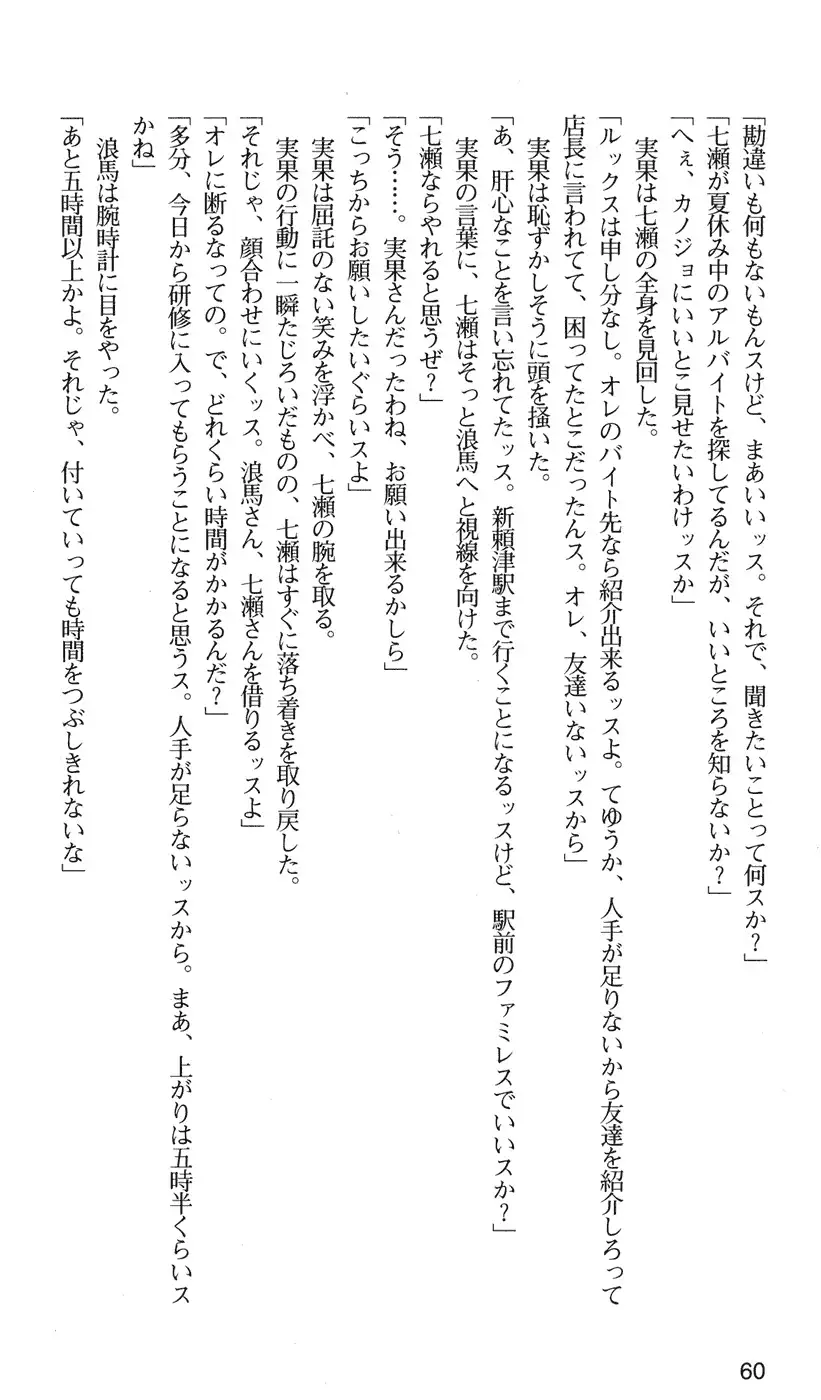 「勘違いも何もないもんスけど、まあいいッス。それで、聞きたいことって何スか？」
「七瀬が夏休み中のアルバイトを探してるんだが、いいところを知らないか？」
「へぇ、カノジョにいいとこ見せたいわけッスか」
　実果は七瀬の全身を見回した。
「ルックスは申し分なし。オレのバイト先なら紹介出来るッスよ。てゆうか、人手が足りないから友達を紹介しろって
店長に言われてて、困ってたとこだったんス。オレ、友達いないッスから」
　実果は恥ずかしそうに頭を掻いた。
「あ、肝心なことを言い忘れてたッス。新頼津駅まで行くことになるッスけど、駅前のファミレスでいいスか？」
　実果の言葉に、七瀬はそっと浪馬へと視線を向けた。
「七瀬ならやれると思うぜ？」
「そう……。実果さんだったわね、お願い出来るかしら」
「こっちからお願いしたいぐらいスよ」
　実果は屈託のない笑みを浮かべ、七瀬の腕を取る。
　実果の行動に一瞬たじろいだものの、七瀬はすぐに落ち着きを取り戻した。
「それじゃ、顔合わせにいくッス。浪馬さん、七瀬さんを借りるッスよ」
「オレに断るなっての。で、どれくらい時間がかかるんだ？」
「多分、今日から研修に入ってもらうことになると思うス。人手が足らないッスから。まあ、上がりは五時半くらいス
かね」
　浪馬は腕時計に目をやった。
「あと五時間以上かよ。それじゃ、付いていっても時間をつぶしきれないな」
60